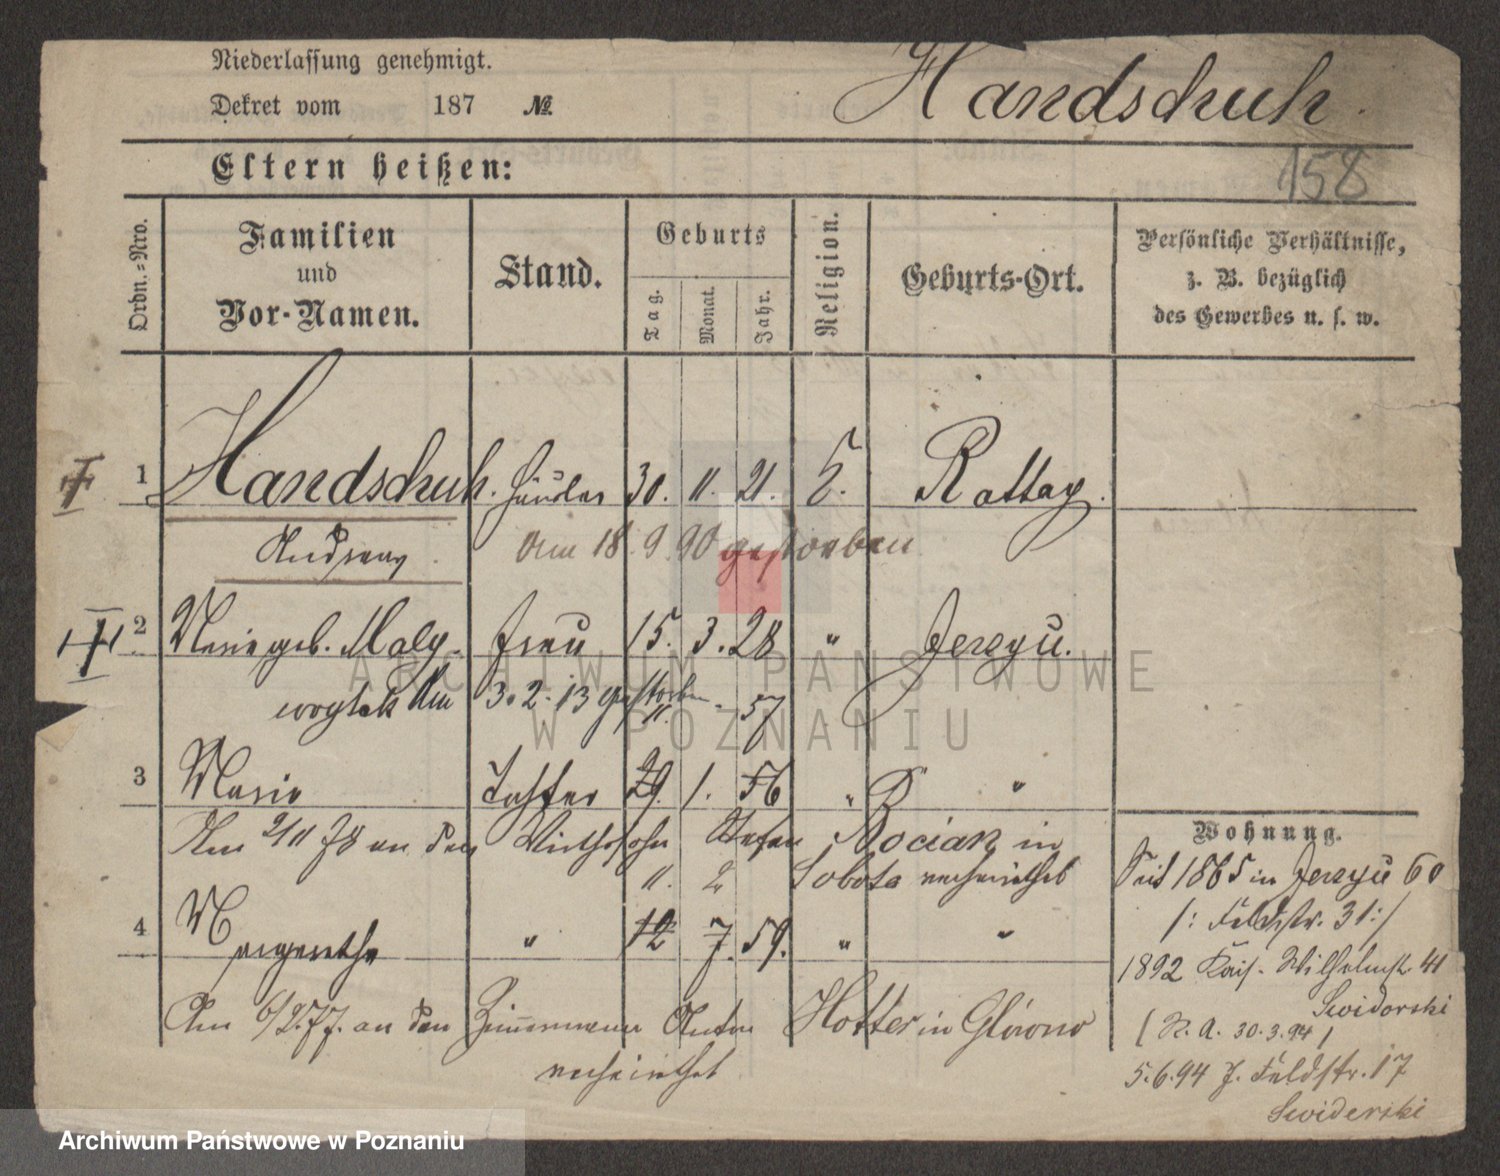 Niederlassung genehmigt.
Dekret vom 187 №
Handschuh.
158
Eltern heißen:
Ordn.=Nro.
Familien
und
Vor-Namen.
Stand.
Geburts
Tag.
Monat.
Jahr.
Religion.
Geburts-Ort.
Persönliche Verhältnisse,
z. B. bezüglich
des Gewerbes u. s. w.
1 Handschuh. Häusler 30. 11. 21. Rattay.
Andreas
Am 18. 9. 90 gestorben
2 Marie geb. Maly- Frau 15. 3. 28 " Jerzyu.
wojtek Am 3. 2. 13 gestorben
11. 57
3 Marie Tochter 29. 1. 56 " "
Am 2/11 78 an den Wirthssohn Stefan Rociak in
11. 2 Sobota verheirathet
4 Margarethe " 12 7. 59. " "
Am 6/2. 77. an den Zimmermann Anton Hotter in Glówno
verheirathet
Wohnung.
Seit 1865 in Jerzyu 60
/: Feldstr. 31:/
1892 Kais. Wilhelmstr. 41
Swiderski
( N. A. 30.3.94 )
5.6.94 J. Feldstr. 17
Swiderski
ARCHIWUM PAŃSTWOWE
W POZNANIU
Archiwum Państwowe w Poznaniu